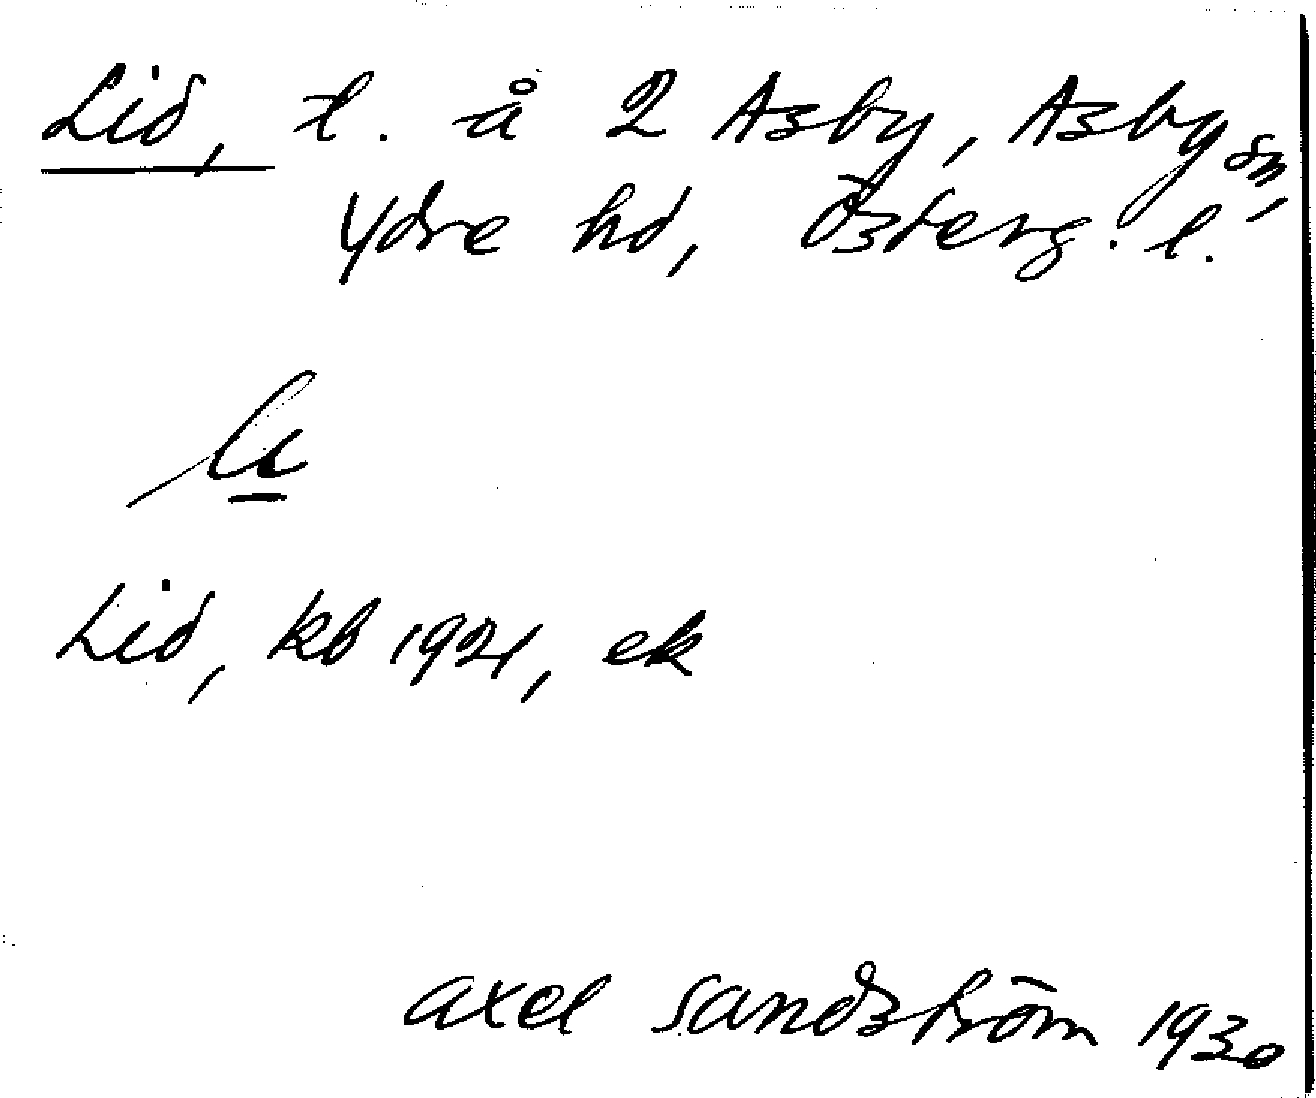 Lid, t. å 2 Asby, Asby sn,
Ydre hd, Österg. l.
Lid, kb 1921, ek
Axel Sandström 1930